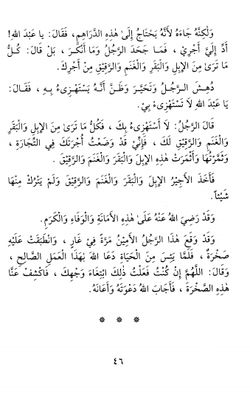 وَلَكِنَّهُ جَاءَهُ لِأَنَّهُ يَحْتَاجُ إِلَىٰ هَٰذِهِ الدَّرَاهِمِ، فَقَالَ: يا عَبْدَ اللهِ!
أَدِّ إِلَيَّ أَجْرِي ، فَمَا جَحَدَ الرَّجُلُ وَمَا أَنْكَرَ ، بَلْ قَالَ: كُلُّ
مَا تَرَىٰ مِنَ الْإِبِلِ وَالْبَقَرِ وَالْغَنَمِ وَالرَّقِيْقِ مِنْ أَجْرِكَ .
دُهِشَ الرَّجُلُ وَتَحَيَّرَ وَظَنَّ أَنَّهُ يَسْتَهْزِىءُ بِهِ ، فَقَالَ:
يَا عَبْدَ اللهِ لَا تَسْتَهْزِىءْ بِيْ.
قَالَ الرَّجُلُ: لَا أَسْتَهْزِىءُ بِكَ ، فَكُلُّ مَا تَرَىٰ مِنَ الْإِبِلِ وَالْبَقَرِ
وَالْغَنَمِ وَالرَّقِيْقِ لَكَ ، فَإِنِّيْ قَدْ وَضَعْتُ أُجْرَتَكَ فِي التِّجَارَةِ ،
وَثَمَّرْتُهَا وَأَثْمَرَتْ هَٰذِهِ الْإِبِلَ وَالْبَقَرَ وَالْغَنَمَ وَالرَّقِيْقَ .
فَأَخَذَ الْأَجِيْرُ الْإِبِلَ وَالْبَقَرَ وَالْغَنَمَ وَالرَّقِيْقَ وَلَمْ يَتْرُكْ مِنْهَا
شَيْئاً.
وَقَدْ رَضِيَ اللهُ عَنْهُ عَلَىٰ هَٰذِهِ الْأَمَانَةِ وَالْوَفَاءِ وَالْكَرَمِ.
وَقَدْ وَقَعَ هَٰذَا الرَّجُلُ الْأَمِيْنُ مَرَّةً فِيْ غَارٍ ، وَانْطَبَقَتْ عَلَيْهِ
صَخْرَةٌ ، فَلَمَّا يَئِسَ مِنَ الْحَيَاةِ دَعَا اللهَ بِهَٰذَا الْعَمَلِ الصَّالِحِ ،
فَقَالَ: اللَّهُمَّ إِنْ كُنْتُ فَعَلْتُ ذٰلِكَ ابْتِغَاءَ وَجْهِكَ ، فَاكْشِفْ عَنَّا
هَٰذِهِ الصَّخْرَةَ ، فَأَجَابَ اللهُ دَعْوَتَهُ وَأَعَانَهُ .
* * *
٤٦